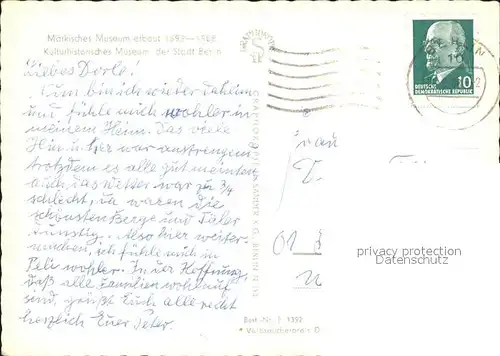 Märkisches Museum erbaut 1899-1908
Kulturhistorisches Museum der Stadt Berlin
Liebes Dorle!
Nun bin ich wieder daheim
und fühle mich wohler in
meinem Heim. Das viele
Hin u. her war anstrengend
trotzdem es alle gut meinten
auch das Wetter war zu 3/4
schlecht, da waren die
schönsten Berge und Täler
dunstig. Also hier weiter-
machen, ich fühle mich in
wohler. In der Hoffnung,
daß alle Familien wohlauf
sind, grüßt Euch alle recht
herzlich Euer Peter.
DEUTSCHE
DEMOKRATISCHE REPUBLIK
10
Frau
D.
01
privacy protection
Datenschutz
Best.-Nr. 1392
Verbraucherpreis